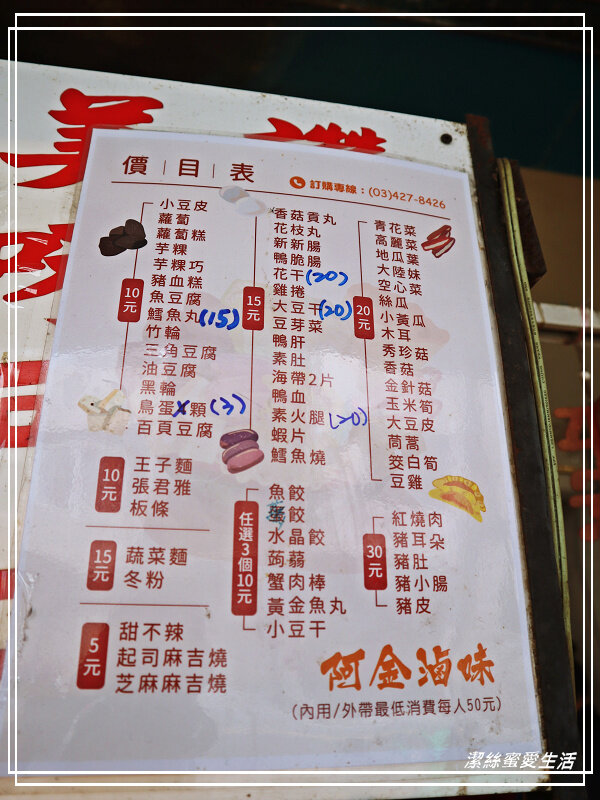 價目表
訂購專線：(03)427-8426
10元
小豆皮
蘿蔔
蘿蔔糕
芋粿
芋粿巧
豬血糕
魚豆腐
鱈魚丸(15)
竹輪
三角豆腐
油豆腐
黑輪
鳥蛋x顆(3)
百頁豆腐
15元
香菇貢丸
花枝丸
新新腸
鴨脆腸
花干(20)
雞捲
大豆干(20)
豆芽菜
鴨肝
素肚
海帶2片
鴨血
素火腿(20)
蝦片
鱈魚燒
20元
青花菜
高麗菜
地瓜葉
大陸妹
空心菜
絲瓜
小黃瓜
木耳
秀珍菇
香菇
金針菇
玉米筍
大豆皮
茼蒿
筊白筍
豆雞
10元
王子麵
張君雅
板條
15元
蔬菜麵
冬粉
5元
甜不辣
起司麻吉燒
芝麻麻吉燒
任選3個10元
魚餃
餃
水晶餃
蒟蒻
蟹肉棒
黃金魚丸
小豆干
30元
紅燒肉
豬耳朵
豬肚
豬小腸
豬皮
阿金滷味
(內用/外帶最低消費每人50元)
潔絲蜜愛生活